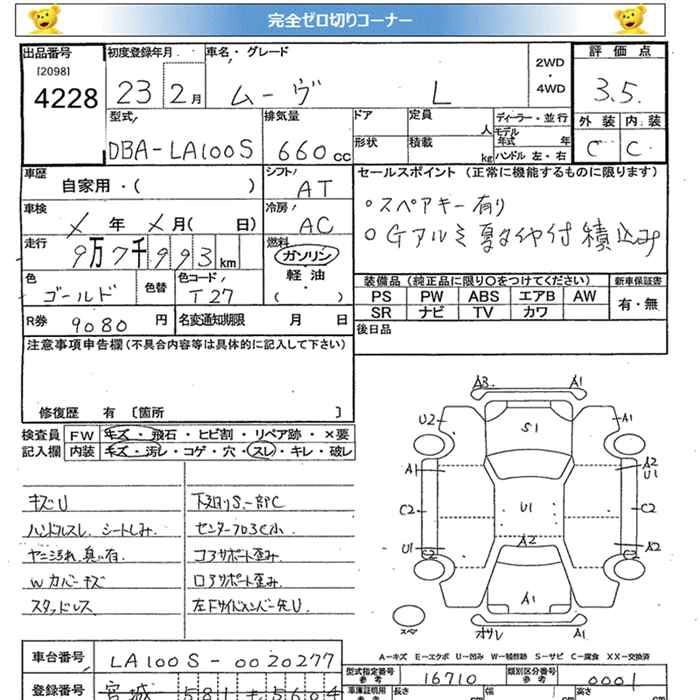 完全ゼロ切りコーナー
出品番号 初度登録年月 車名・グレード 2WD・4WD 評価点
[2098]
4228 23 2月 ムーヴ L 3.5
型式 排気量 ドア 定員 人 ディーラー・並行 外装 内装
DBA-LA100S 660cc 形状 積載 kg モデル年式 年 ハンドル 左・右 C C
車歴 シフト セールスポイント (正常に機能するものに限ります)
自家用・( ) AT
車検 冷房 。スペアキー有り
メ 年 メ 月( 日) AC ○Gアルミ夏タイヤ付積込み
走行 燃料
9万7千993km ガソリン・軽油・( )
色 色替 色コード 装備品 (純正品に限り○をつけてください) 新車保証書
ゴールド T27 PS PW ABS エアB AW 有・無
R券 9080円 名変通知期限 月 日 SR ナビ TV カワ
後日品
注意事項申告欄(不具合内容等は具体的に記入して下さい)
修復歴 有 〔箇所 〕
検査員 FW キズ・飛石・ヒビ割・リペア跡・×要
記入欄 内装 キズ・汚レ・コゲ・穴・スレ・キレ・破レ
キズU 下廻りS.一部C
ハンドルスレ.シートしみ. センターフロ3C小
ヤニ汚れ.臭い有. コアサポート歪み
Wカバーキズ ロアサポート歪み.
スタッドレス 左Fサイドメンバー先U.
A3. A1
U2 S1 A1
A1 A2 U1
C2 U1 C2
U1 C2 A2 C2 A2
A1
スペ オサレ A1
A-キズ E-エクボ U-凹み W-補修跡 S-サビ C-腐食 XX-交換済
車台番号 LA100S-0020277
型式指定番号 16710 類別区分番号 0001
登録番号 宮城 581 モ 5604
車庫証明用 長さ cm 幅 cm 高さ cm